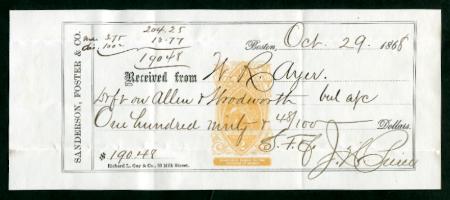 SANDERSON, FOSTER & CO.
204.25
13.77
190.48
Boston, Oct. 29. 1868
Received from W. R. Ayer.
Dft on Allen & Woodworth bal a/c
One hundred ninty & 48/100 Dollars.
S. F. & Co
$190.48
Richard L. Gay & Co., 33 Milk Street.